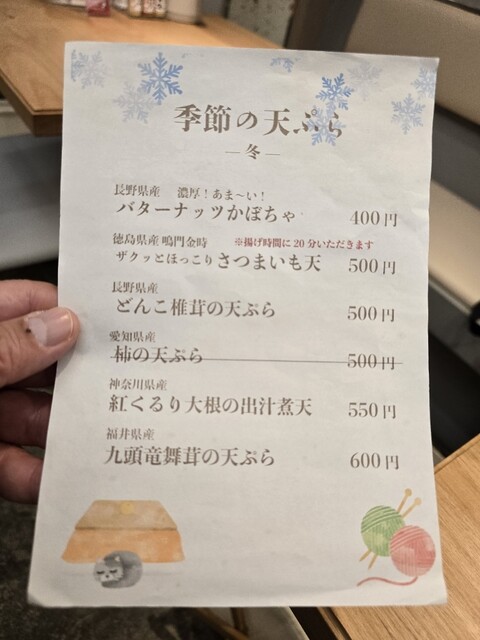 季節の天ぷら
―冬―
長野県産 濃厚！あま〜い！
バターナッツかぼちゃ 400円
徳島県産 鳴門金時 ※揚げ時間に20分いただきます
ザクッとほっこりさつまいも天 500円
長野県産
どんこ椎茸の天ぷら 500円
愛知県産
柿の天ぷら 500円
神奈川県産
紅くるり大根の出汁煮天 550円
福井県産
九頭竜舞茸の天ぷら 600円